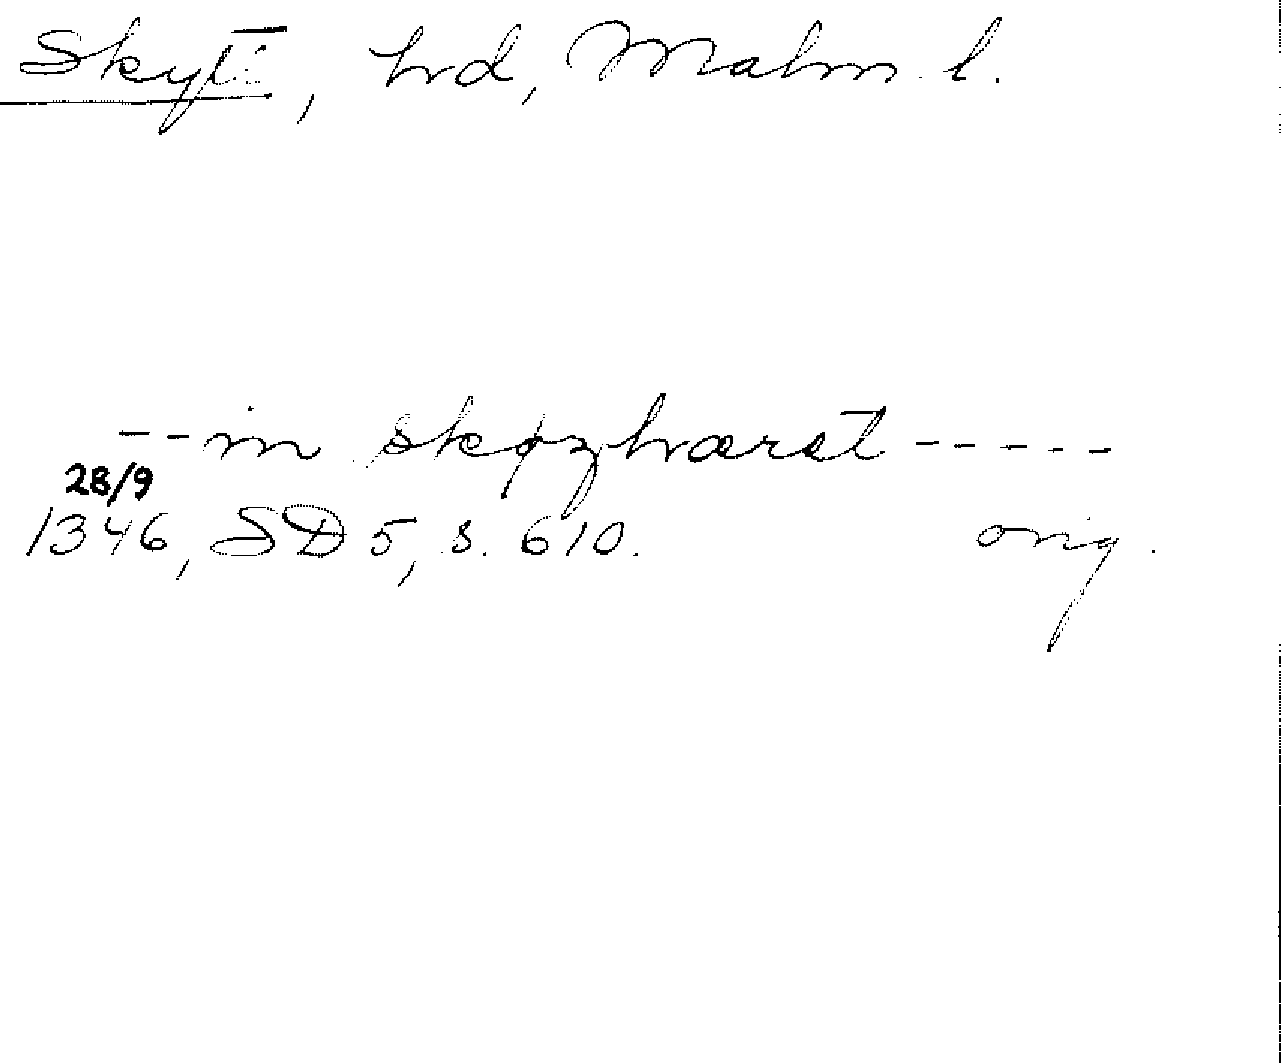 Skyt:, hrd, Malm. l.
--in skøzhæræt-----
28/9
1346, SD 5, s. 610. orig.